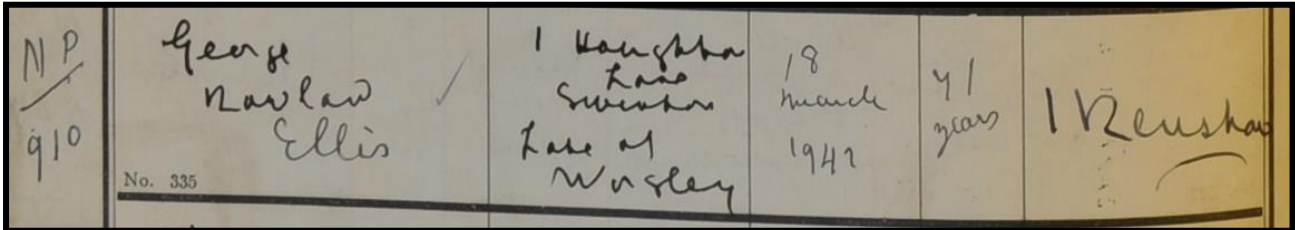 NP
910
George
Rowland
Ellis
No. 335
1 Houghton
Lane
Swinton
Late of
Worsley
18
March
1942
71
years
J Renshaw